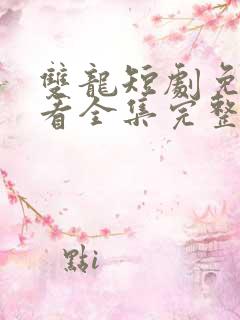 雙龍短劇免
看全集完整
點i